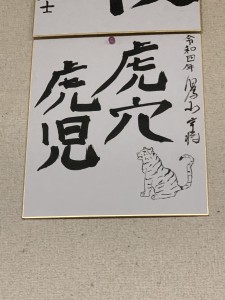 士
令和四年
虎穴
虎児